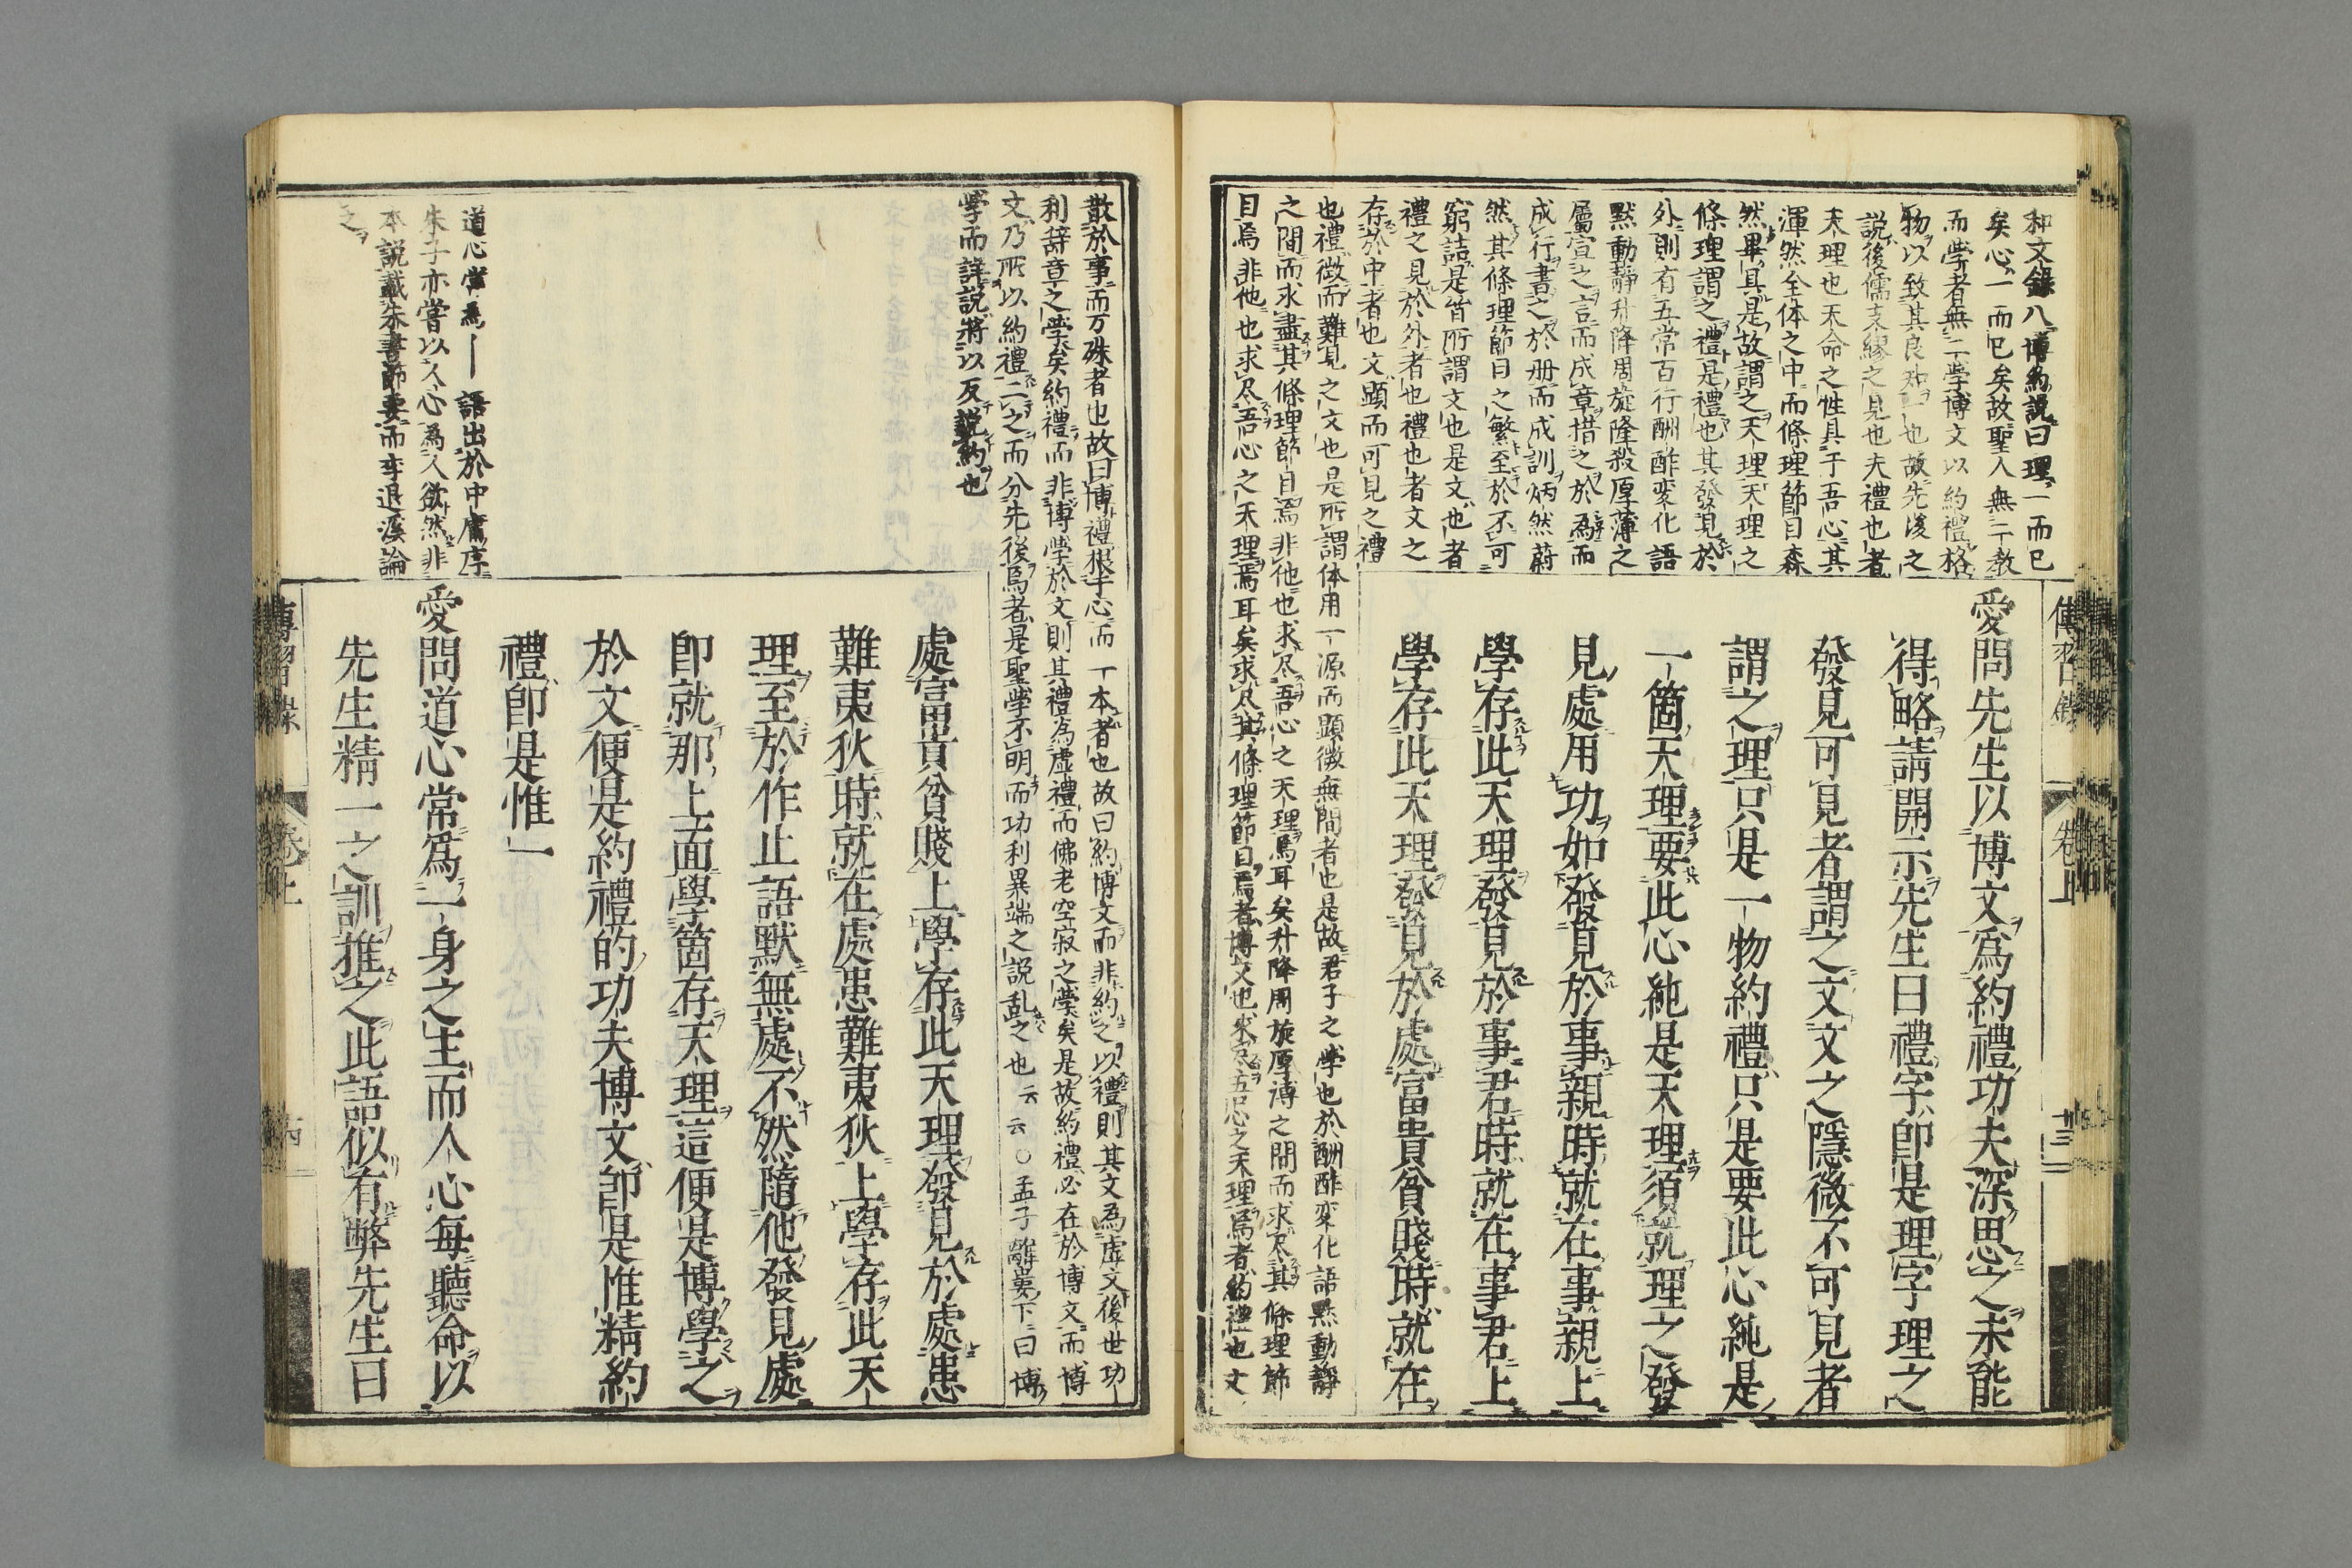 和文錄八博約説曰理一而已
矣心一而已矣故聖人無二教
而學者無二學博文以約禮格
物以致其良知一也故先後之
説後儒支繆之見也夫禮也者
天理也天命之性具于吾心其
渾然全体之中而條理節目森
然畢具是故謂之天理天理之
條理謂之禮是禮也其發見於
外則有五常百行酬酢変化語
默動靜升降周旋隆殺厚薄之
屬宣之言而成章措之於為而
成行書之於册而成訓炳然蔚
然其條理節目之繁至於不可
窮詰是皆所謂文也是文也者
禮之見於外者也禮也者文之
存於中者也文顕而可見之禮
也禮微而難見之文也是所謂体用一源而顕微無間者也是故君子之学也於酬酢変化語黙動靜
之間而求盡其條理節目焉非他也求尽吾心之天理焉耳矣升降周旋厚薄之間而求尽其條理節
目焉非他也求尽吾心之天理焉耳矣求尽其條理節目焉者博文也求尽吾心之天理焉者約禮也文
愛問先生以博文爲約禮功夫深思之未能
得略請開示先生曰禮字卽是理字理之
發見可見者謂之文文之隱微不可見者
謂之理只是一物約禮只是要此心純是
一箇天理要此心純是天理須就理之發
見處用功如發見於事親時就在事親上
學存此天理發見於事君時就在事君上
學存此天理發見於處富貴貧賤時就在
傳習録
卷上
十三
散於事而万殊者也故曰博禮根于心而一本者也故曰約博文而非約之以禮則其文為虚文後世功
利辞章之学矣約禮而非博学於文則其禮為虚禮而佛老空寂之学矣是故約禮必在於博文而博
文乃所以約禮二之而分先後焉者是聖学不明而功利異端之説乱之也云云○孟子離婁下曰博
学而詳説將以反説約也
處富貴貧賤上學存此天理發見於處患
難夷狄時就在處患難夷狄上學存此天
理至於作止語默無處不然隨他發見處
卽就那上面學箇存天理這便是博學之
於文便是約禮的功夫博文卽是惟精約
禮卽是惟一
道心常為— 語出於中庸序
朱子亦嘗以人心為人欲然非
本説載朱書節要而李退溪論
之
愛問道心常爲一身之主而人心每聽命以
先生精一之訓推之此語似有弊先生曰
傳習録
卷上